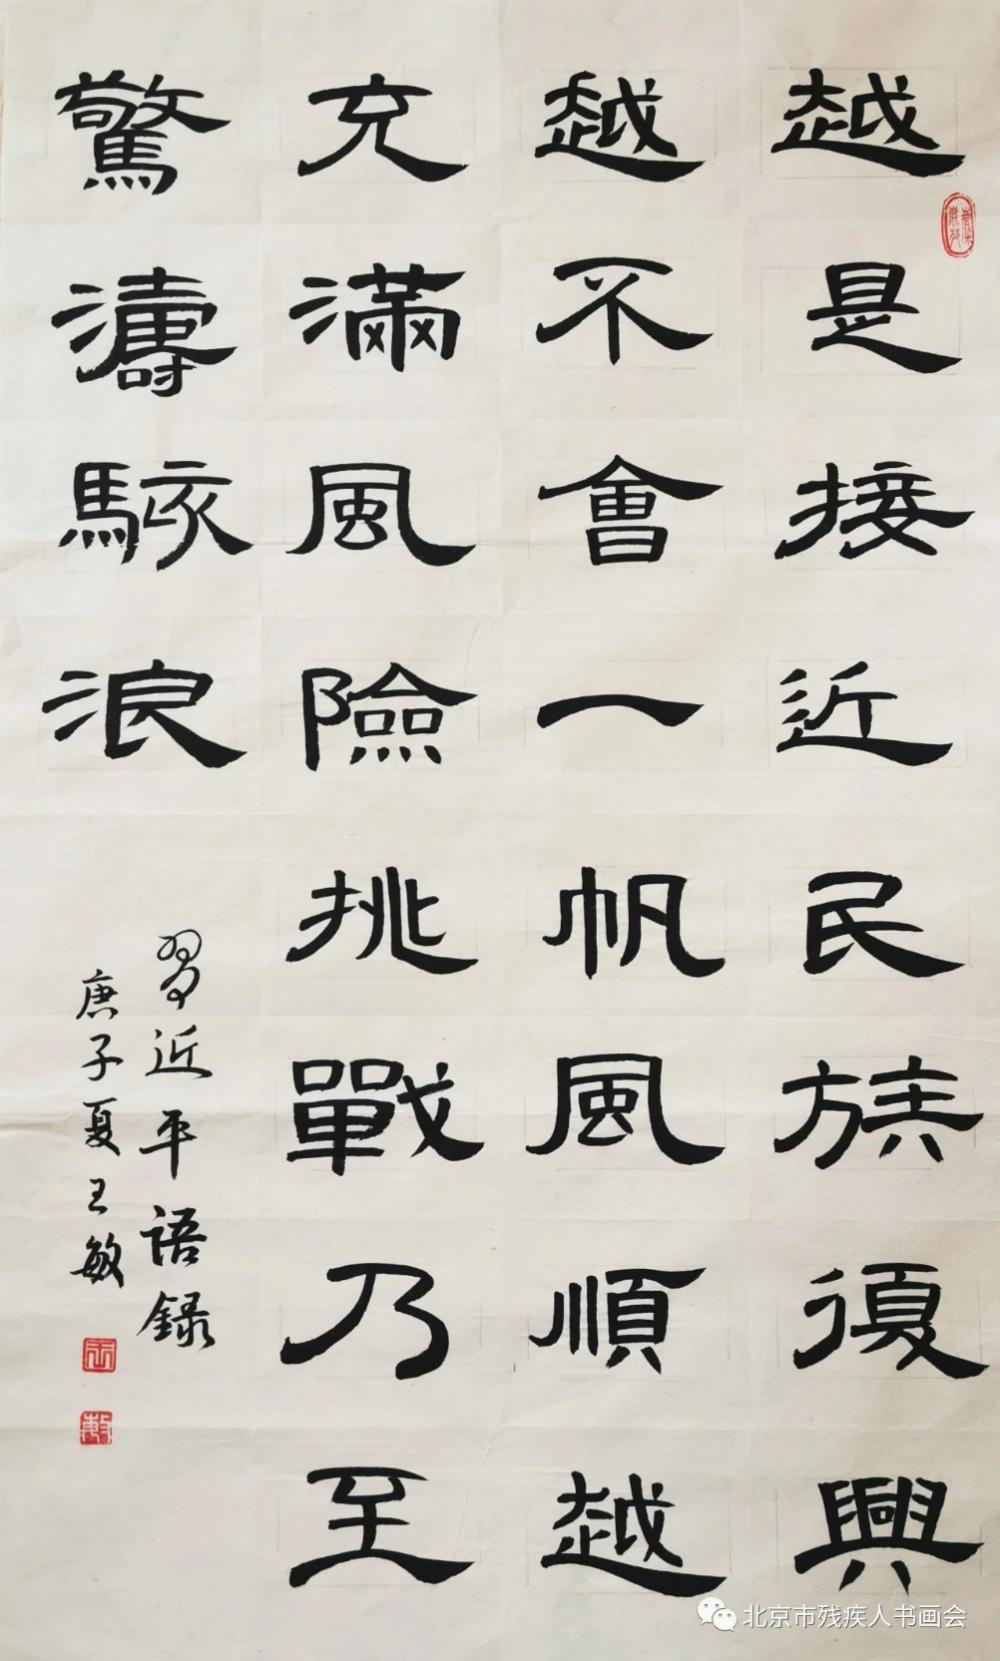 越是接近民族復興
越不會一帆風順越
充滿風險挑戰乃至
驚濤駭浪
習近平語録
庚子夏王敏
北京市残疾人书画会